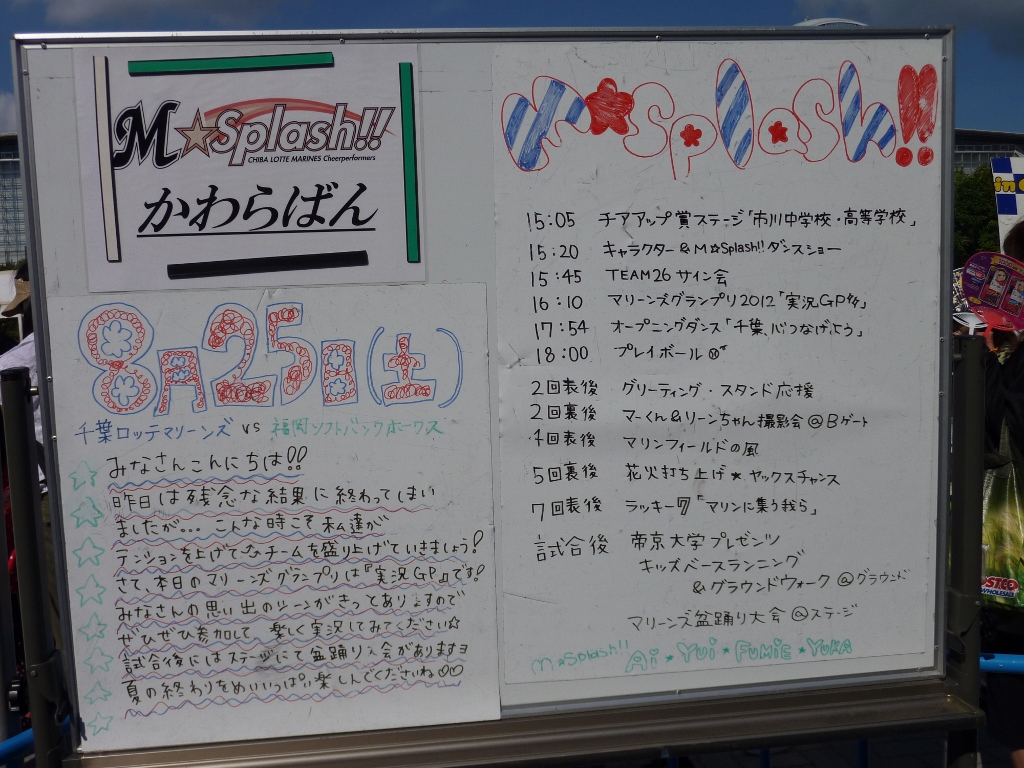 M☆Splash!!
CHIBA LOTTE MARINES Cheerperformers
かわらばん
8月25日(土)
千葉ロッテマリーンズ vs 福岡ソフトバンクホークス
みなさんこんにちは!!
昨日は残念な結果に終わってしまい
ましたが… こんな時こそ私達が
テンションを上げてチームを盛り上げていきましょう!
さて、本日のマリーンズグランプリは『実況GP』です!
みなさんの思い出のシーンがきっとありますので
ぜひぜひ参加して 楽しく実況してみてください☆
試合後にはステージにて盆踊り大会がありますヨ
夏の終わりをめいいっぱい楽しんでくださいね♡♡
M★Splash!!
15:05 チアアップ賞ステージ「市川中学校・高等学校」
15:20 キャラクター&M☆Splash!!ダンスショー
15:45 TEAM26 サイン会
16:10 マリーンズグランプリ2012「実況GP」
17:54 オープニングダンス「千葉、心つなげよう」
18:00 プレイボール
2回表後 グリーティング・スタンド応援
2回裏後 マーくん&リーンちゃん撮影会@Bゲート
4回表後 マリンフィールドの風
5回裏後 花火打ち上げ★ヤックスチャンス
7回表後 ラッキー7「マリンに集う我ら」
試合後 帝京大学プレゼンツ
キッズベースランニング
&グラウンドウォーク@グラウンド
マリーンズ盆踊り大会@ステージ
M☆Splash!! Ai★YUi★FUMiE★YUKA